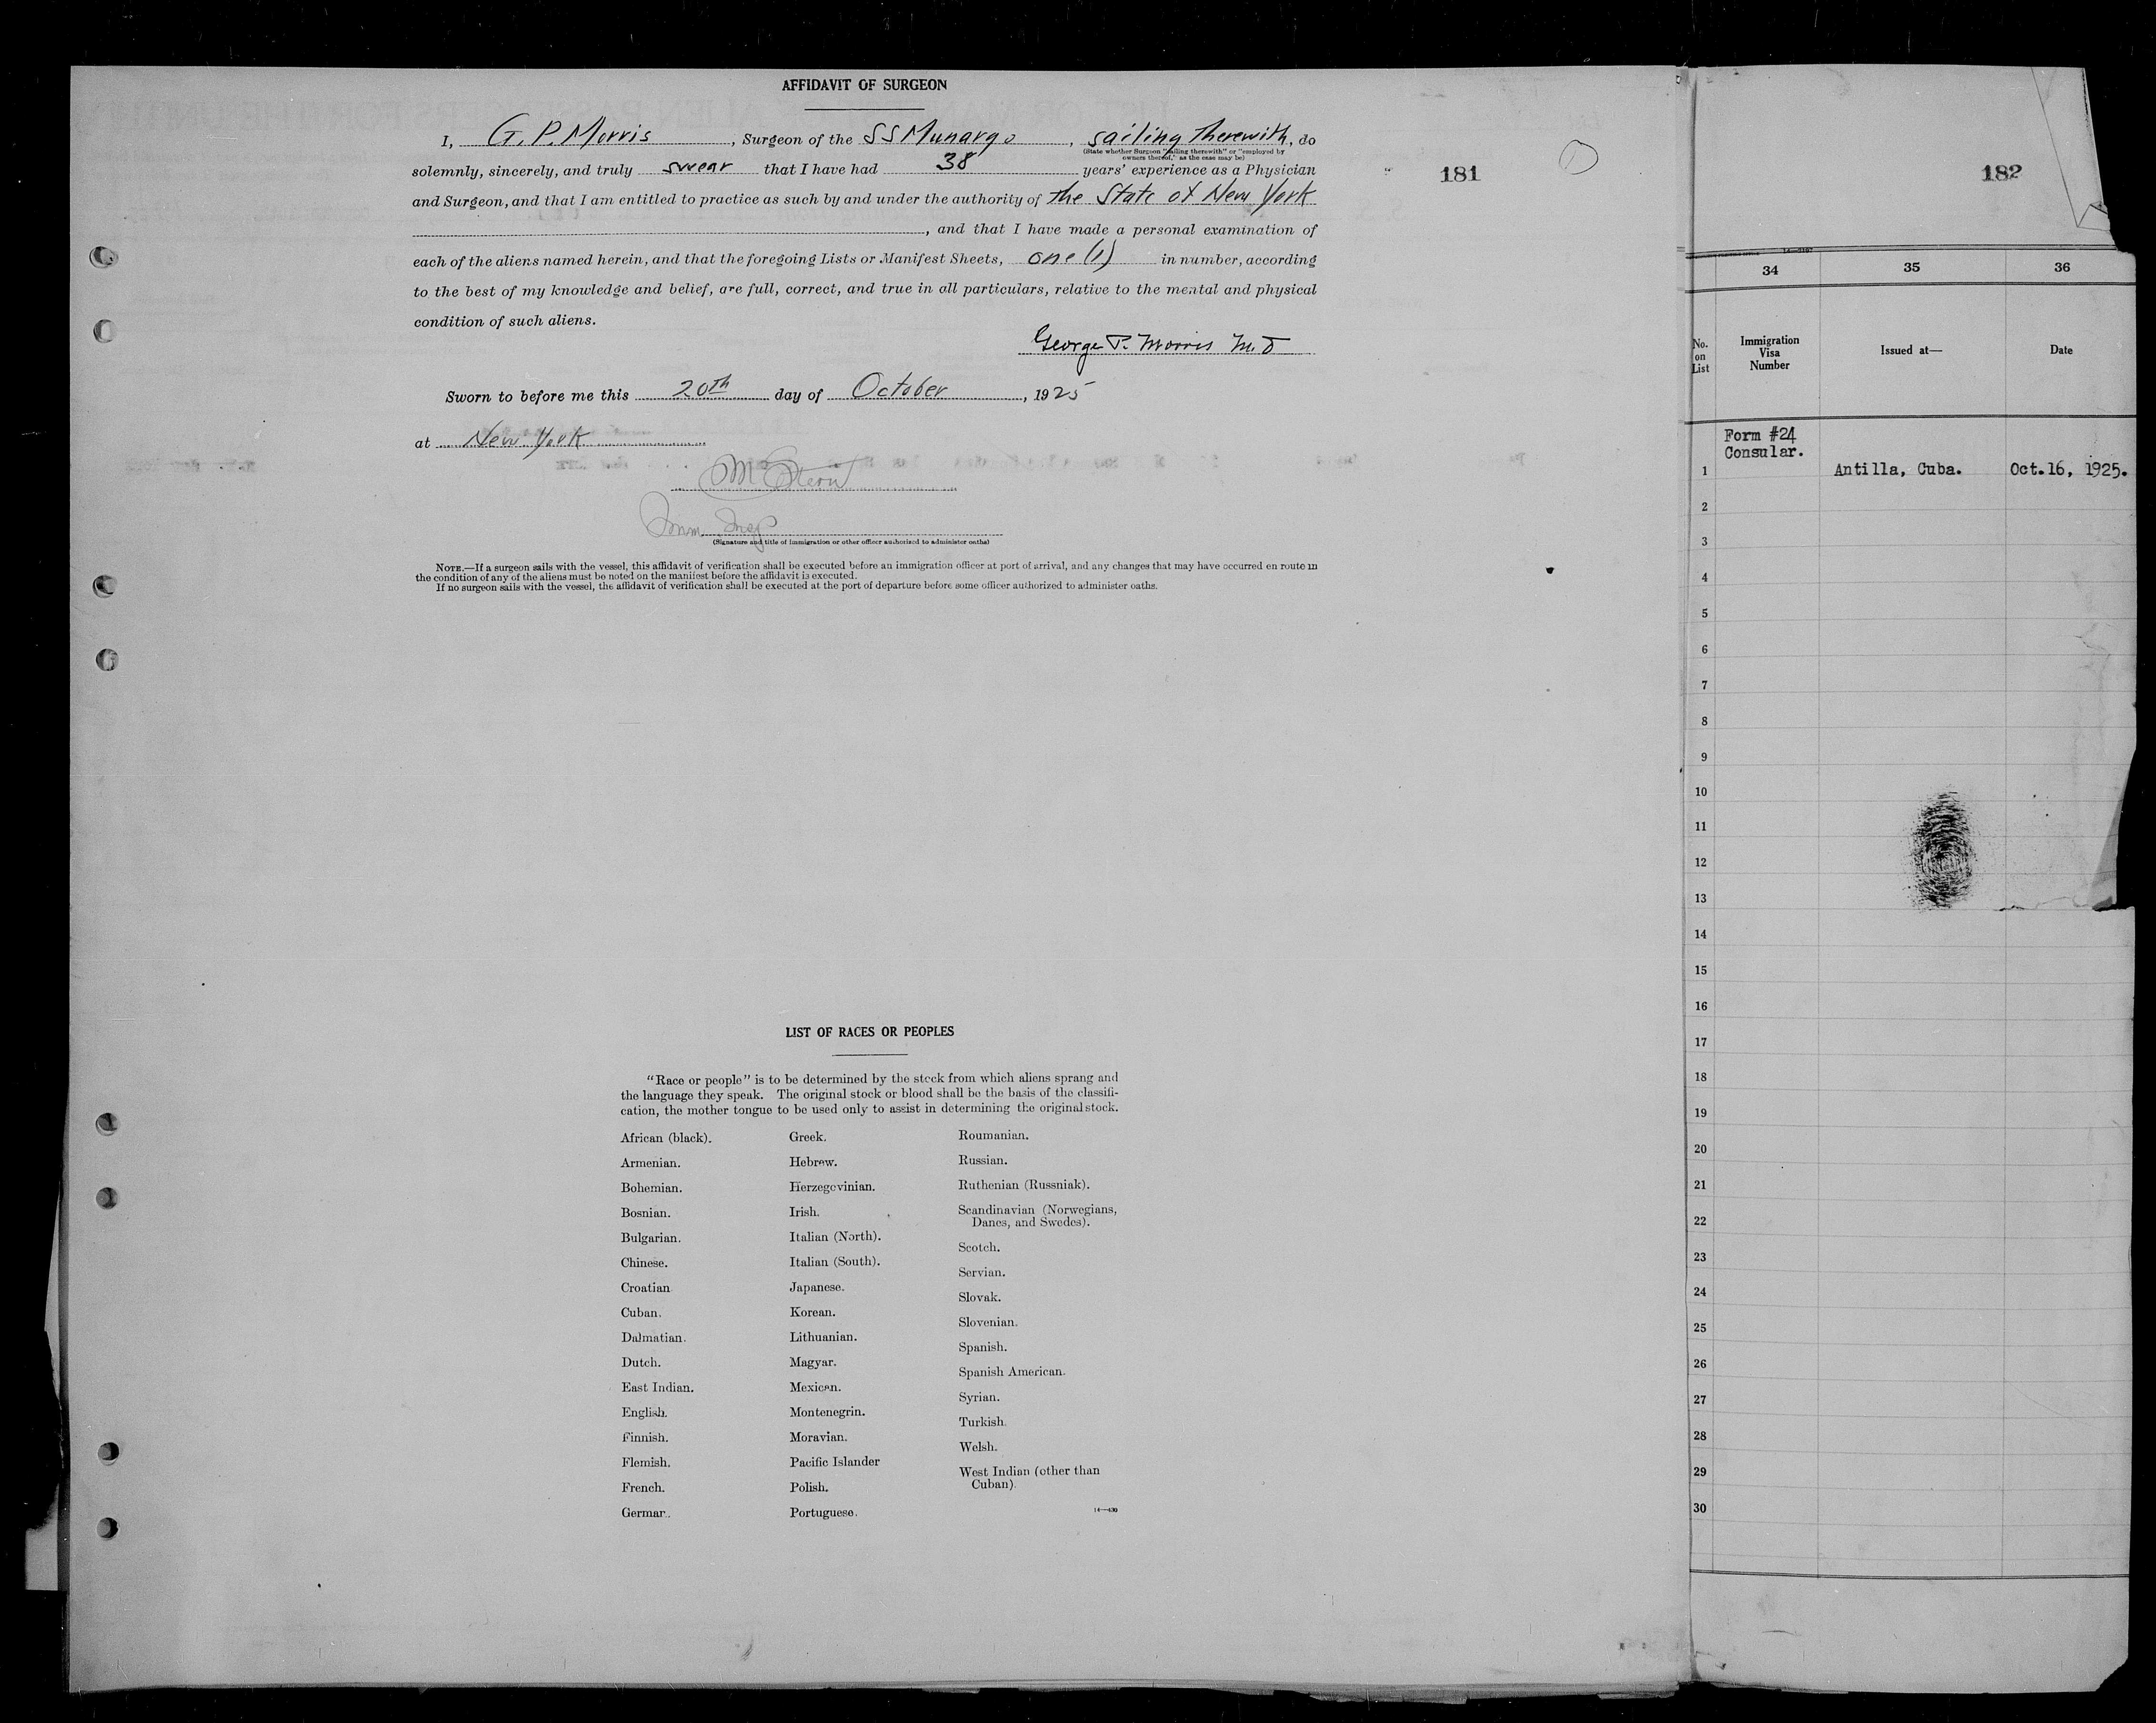 AFFIDAVIT OF SURGEON
I, G. P. Morris, Surgeon of the SS Munargo, sailing therewith, do
(State whether Surgeon "sailing therewith" or "employed by
owners thereof," as the case may be)
solemnly, sincerely, and truly swear that I have had 38 years' experience as a Physician
and Surgeon, and that I am entitled to practice as such by and under the authority of the State of New York
, and that I have made a personal examination of
each of the aliens named herein, and that the foregoing Lists or Manifest Sheets, one (1) in number, according
to the best of my knowledge and belief, are full, correct, and true in all particulars, relative to the mental and physical
condition of such aliens.
George P. Morris M.D
Sworn to before me this 20th day of October, 1925
at New York
Imm. Insp
(Signature and title of immigration or other officer authorized to administer oaths)
NOTE.—If a surgeon sails with the vessel, this affidavit of verification shall be executed before an immigration officer at port of arrival, and any changes that may have occurred en route in
the condition of any of the aliens must be noted on the manifest before the affidavit is executed.
If no surgeon sails with the vessel, the affidavit of verification shall be executed at the port of departure before some officer authorized to administer oaths.
181
LIST OF RACES OR PEOPLES
"Race or people" is to be determined by the stock from which aliens sprang and
the language they speak. The original stock or blood shall be the basis of the classifi-
cation, the mother tongue to be used only to assist in determining the original stock.
African (black).
Armenian.
Bohemian.
Bosnian.
Bulgarian.
Chinese.
Croatian
Cuban.
Dalmatian.
Dutch.
East Indian.
English.
Finnish.
Flemish.
French.
German.
Greek.
Hebrew.
Herzegovinian.
Irish.
Italian (North).
Italian (South).
Japanese.
Korean.
Lithuanian.
Magyar.
Mexican.
Montenegrin.
Moravian.
Pacific Islander
Polish.
Portuguese.
Roumanian.
Russian.
Ruthenian (Russniak).
Scandinavian (Norwegians,
Danes, and Swedes).
Scotch.
Servian.
Slovak.
Slovenian.
Spanish.
Spanish American.
Syrian.
Turkish.
Welsh.
West Indian (other than
Cuban).
14—430
182
34 35 36
No.
on
List
Immigration
Visa
Number
Issued at—
Date
Form #24
Consular.
1 Antilla, Cuba. Oct.16, 1925.
2
3
4
5
6
7
8
9
10
11
12
13
14
15
16
17
18
19
20
21
22
23
24
25
26
27
28
29
30